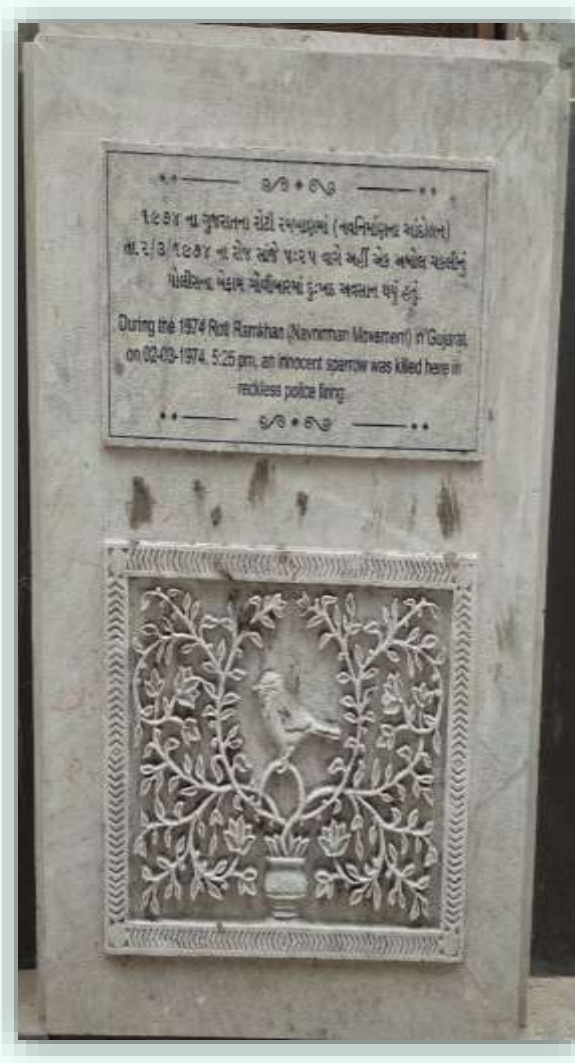 ૧૯૭૪ ના ગુજરાતના રોટી રમખાણમાં (નવનિર્માણના આંદોલન)
તા.૨/૩/૧૯૭૪ ના રોજ સાંજે ૫:૨૫ વાગે અહીં એક અબોલ ચકલીનું
પોલીસના બેફામ ગોળીબારમાં દુઃખદ અવસાન થયું હતું.
During the 1974 Roti Ramkhan (Navnirman Movement) in Gujarat,
on 02-03-1974, 5:25 pm, an innocent sparrow was killed here in
reckless police firing.